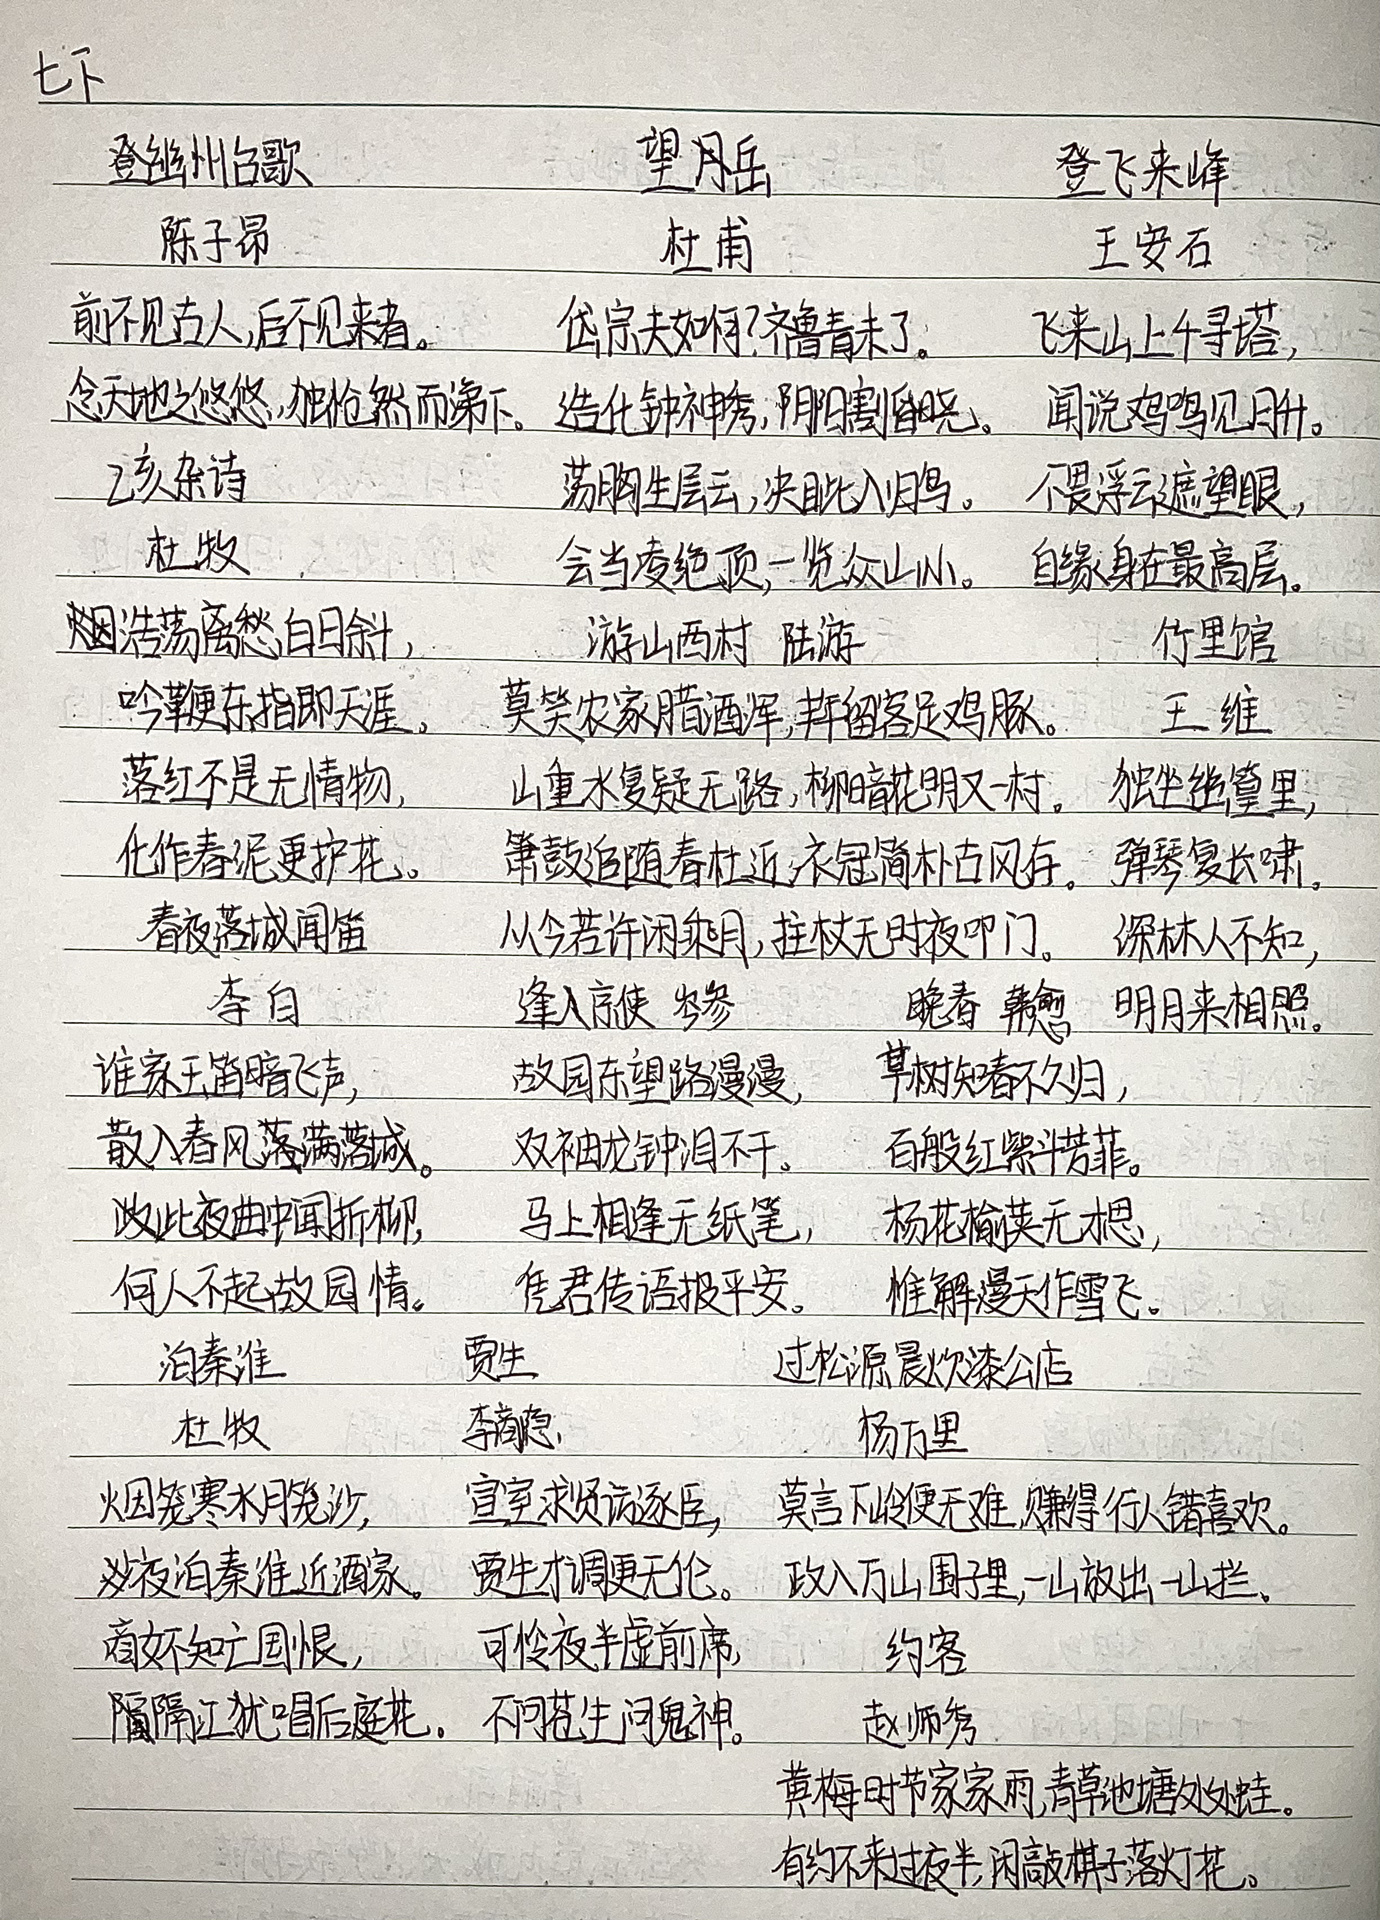 七下
登幽州台歌
陈子昂
前不见古人,后不见来者。
念天地之悠悠,独怆然而涕下。
乙亥杂诗
杜牧
浩荡离愁白日斜,
吟鞭东指即天涯。
落红不是无情物,
化作春泥更护花。
春夜落城闻笛
李白
谁家玉笛暗飞声,
散入春风落满落城。
此夜曲中闻折柳,
何人不起故园情。
泊秦淮
杜牧
烟笼寒水月笼沙,
夜泊秦淮近酒家。
商女不知亡国恨,
隔江犹唱后庭花。
望岳
杜甫
岱宗夫如何?齐鲁青未了。
造化钟神秀,阴阳割昏晓。
荡胸生层云,决眦入归鸟。
会当凌绝顶,一览众山小。
游山西村 陆游
莫笑农家腊酒浑,丰年留客足鸡豚。
山重水复疑无路,柳暗花明又一村。
箫鼓追随春社近,衣冠简朴古风存。
从今若许闲乘月,拄杖无时夜叩门。
逢入京使 岑参
故园东望路漫漫,
双袖龙钟泪不干。
马上相逢无纸笔,
凭君传语报平安。
贾生
李商隐
宣室求贤访逐臣,
贾生才调更无伦。
可怜夜半虚前席,
不问苍生问鬼神。
登飞来峰
王安石
飞来山上千寻塔,
闻说鸡鸣见日升。
不畏浮云遮望眼,
自缘身在最高层。
竹里馆
王维
独坐幽篁里,
弹琴复长啸。
深林人不知,
明月来相照。
晚春 韩愈
草树知春不久归,
百般红紫斗芳菲。
杨花榆荚无才思,
惟解漫天作雪飞。
过松源晨炊漆公店
杨万里
莫言下岭便无难,赚得行人错喜欢。
政入万山围子里,一山放出一山拦。
约客
赵师秀
黄梅时节家家雨,青草池塘处处蛙。
有约不来过夜半,闲敲棋子落灯花。